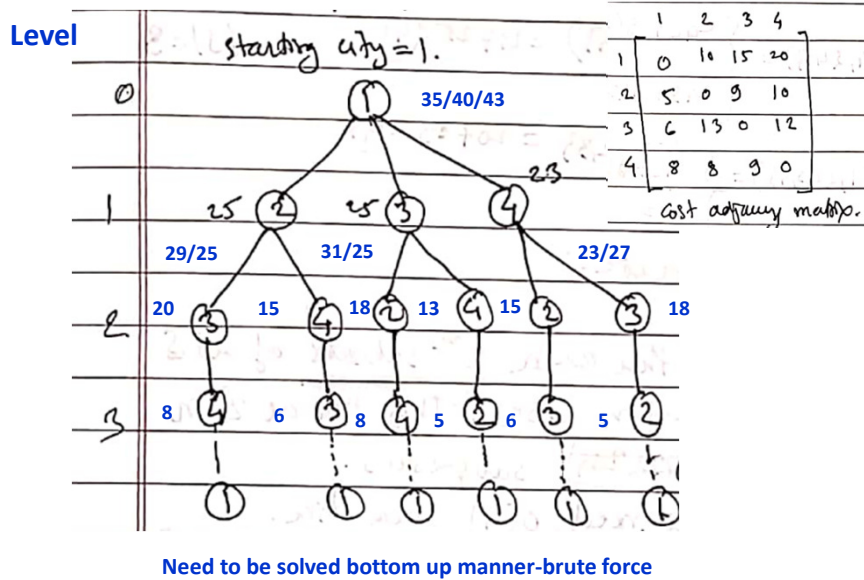 Level
starting city = 1.
1 2 3 4
1 0 10 15 20
2 5 0 9 10
3 6 13 0 12
4 8 8 9 0
cost adjancy matrix.
0 1 35/40/43
23
1 25 2 25 3 4
29/25 31/25 23/27
20 15 18 13 15 18
2 3 4 2 4 2 3
3 4 3 4 2 3 2
8 6 8 5 6 5
1 1 1 1 1 1
Need to be solved bottom up manner-brute force